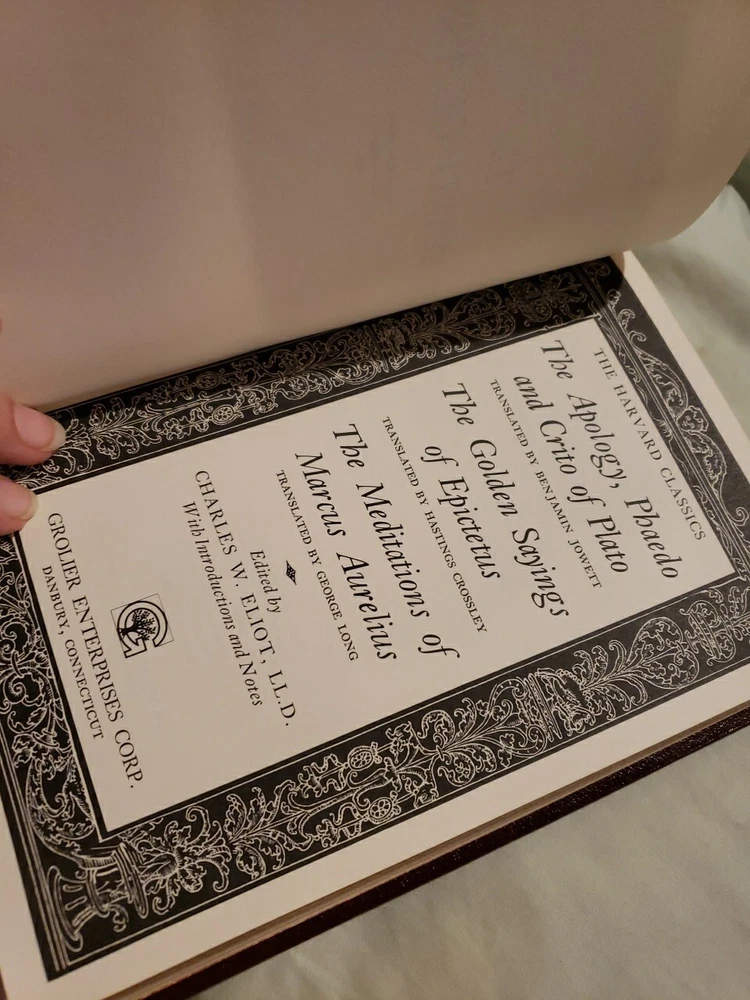 THE HARVARD CLASSICS
The Apology, Phaedo
and Crito of Plato
TRANSLATED BY BENJAMIN JOWETT
The Golden Sayings
of Epictetus
TRANSLATED BY HASTINGS CROSSLEY
The Meditations of
Marcus Aurelius
TRANSLATED BY GEORGE LONG
Edited by
CHARLES W. ELIOT, LL.D.
With Introductions and Notes
GROLIER ENTERPRISES CORP.
DANBURY, CONNECTICUT